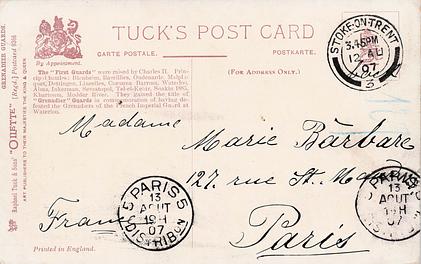 TUCK'S POST CARD
CARTE POSTALE.
POSTKARTE.
(FOR ADDRESS ONLY.)
By Appointment.
The "First Guards" were raised by Charles II. Prin-
cipal Battles: Blenheim, Ramillies, Oudenarde, Malpla-
quet, Dettingen, Lincelles, Corunna, Barrosa, Waterloo,
Alma, Inkerman, Sevastopol, Tel-el-Kebir, Suakin 1885,
Khartoum, Modder River. They gained the title of
"Grenadier" Guards in commemoration of having de-
feated the Grenadiers of the French Imperial Guard at
Waterloo.
GRENADIER GUARDS.
"OILETTE" [Regd.] Postcard
Raphael Tuck & Sons'
ART PUBLISHERS TO THEIR MAJESTIES THE KING & QUEEN
STOKE-ON-TRENT
3.15PM
12 AU
07
3
Madame
Marie Bârbare
127, rue St.
Paris
PARIS
13
AOUT
19H
07
DISTRIBON
PARIS
13
AOUT
07
Printed in England.